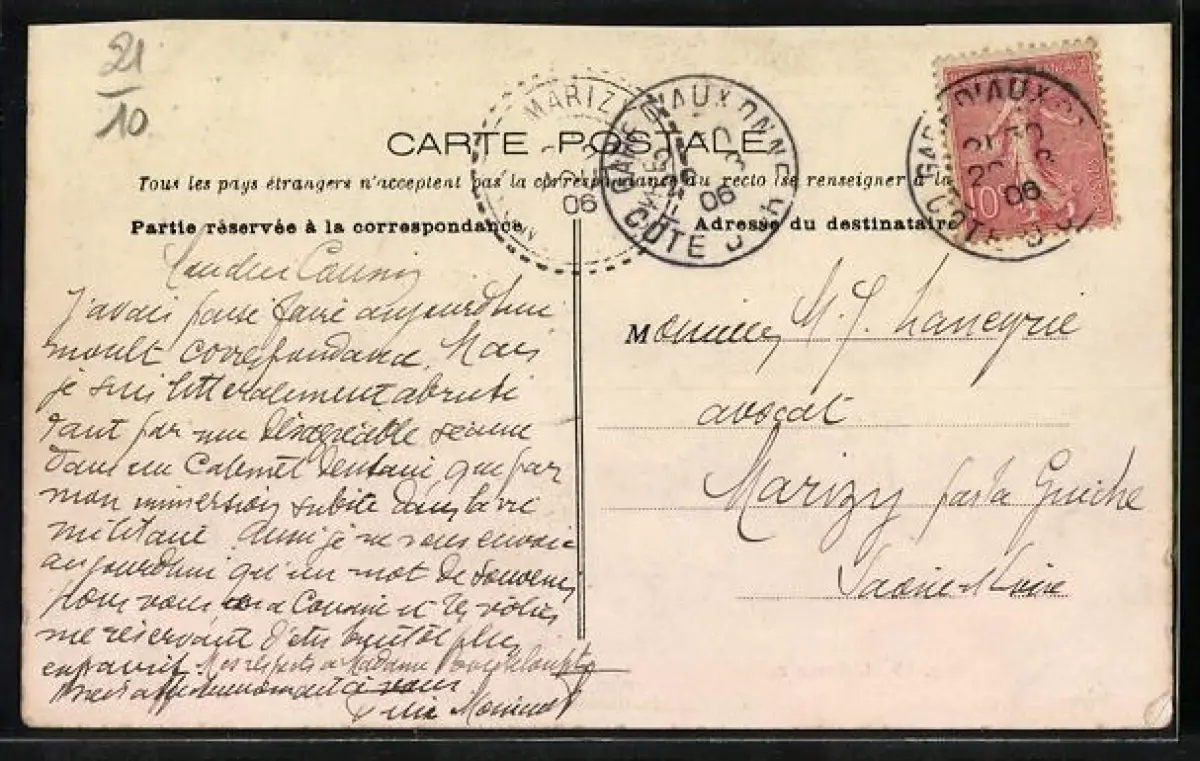 21
10
CARTE POSTALE
Tous les pays étrangers n'acceptent pas la correspondance au recto (se renseigner à la
Partie réservée à la correspondance
Adresse du destinataire
MARIZY
06
GARE D'AUXONNE
06
CÔTE D'OR
GARE D'AUXONNE
21 30
06
CÔTE D'OR
10
POSTES
Mon cher Cousin
J'avais pensé faire aujourd'hui
moult correspondance. Mais
je suis littéralement abruti
tant par une désagréable séance
dans un Cabinet dentaire que par
mon immersion subite dans la vie
militaire. Aussi je ne vous envoie
aujourd'hui qu'un mot de souvenir
pour vous Cousine et les vôtres
me réservant d'être bientôt plus
Mes respects à Madame
affectueusement à vous
Monsieur M. J. Laneyrie
avocat
Marizy par la Guiche
Saône-et-Loire